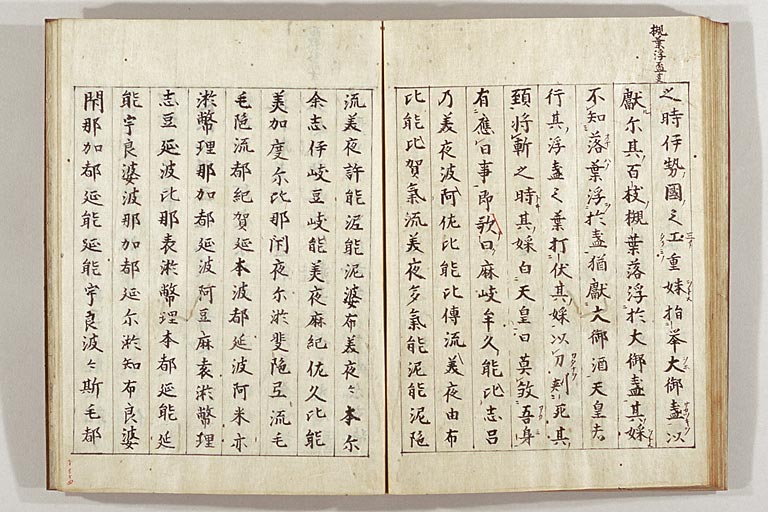 槻葉浮盞
之時伊勢國之玉重婇指举大御盞以
獻尓其百枝槻葉落浮於大御盞其婇
不知落葉浮於盞猶獻大御酒天皇
行其浮盞之葉打伏其婇以刀刺死其
頚将斬之時其婇白天皇曰莫殺吾身
有應曰事即歌曰麻岐牟久能比志呂
乃美夜波阿佐比能比傳流美夜由布
比能比賀氣流美夜多氣能泥能泥陁
流美夜許能泥能泥婆布美夜々本尓
余志伊岐豆岐能美夜麻紀佐久比能
美加度尓比那閇夜尓淤斐陁弖流毛
毛陁流都紀賀延本波都延波阿米亦
淤幣理那加都延波阿豆麻袁淤幣理
志豆延波比那袁淤幣理本都延能延
能宇良婆波那加都延尓淤知布良婆
閇那加都延能延能宇良波々斯毛都